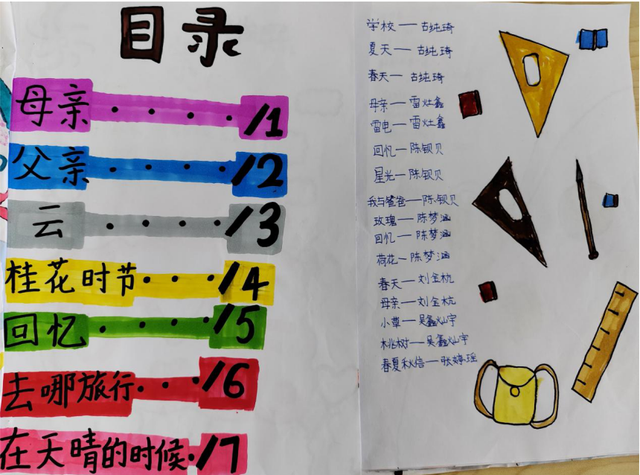 目录
母亲····/1
父亲····/2
云····/3
桂花时节···/4
回忆····/5
去哪旅行···/6
在天晴的时候·/7
学校——古纯琦
夏天——古纯琦
春天——古纯琦
母亲——雷灶鑫
雷电——雷灶鑫
回忆——陈钡贝
星光——陈钡贝
我与爸爸——陈钡贝
玫瑰——陈梦涵
回忆——陈梦涵
荷花——陈梦涵
春天——刘金杭
母亲——刘金杭
小草——吴鑫灿宇
桃树——吴鑫灿宇
春夏秋冬——张婷瑶